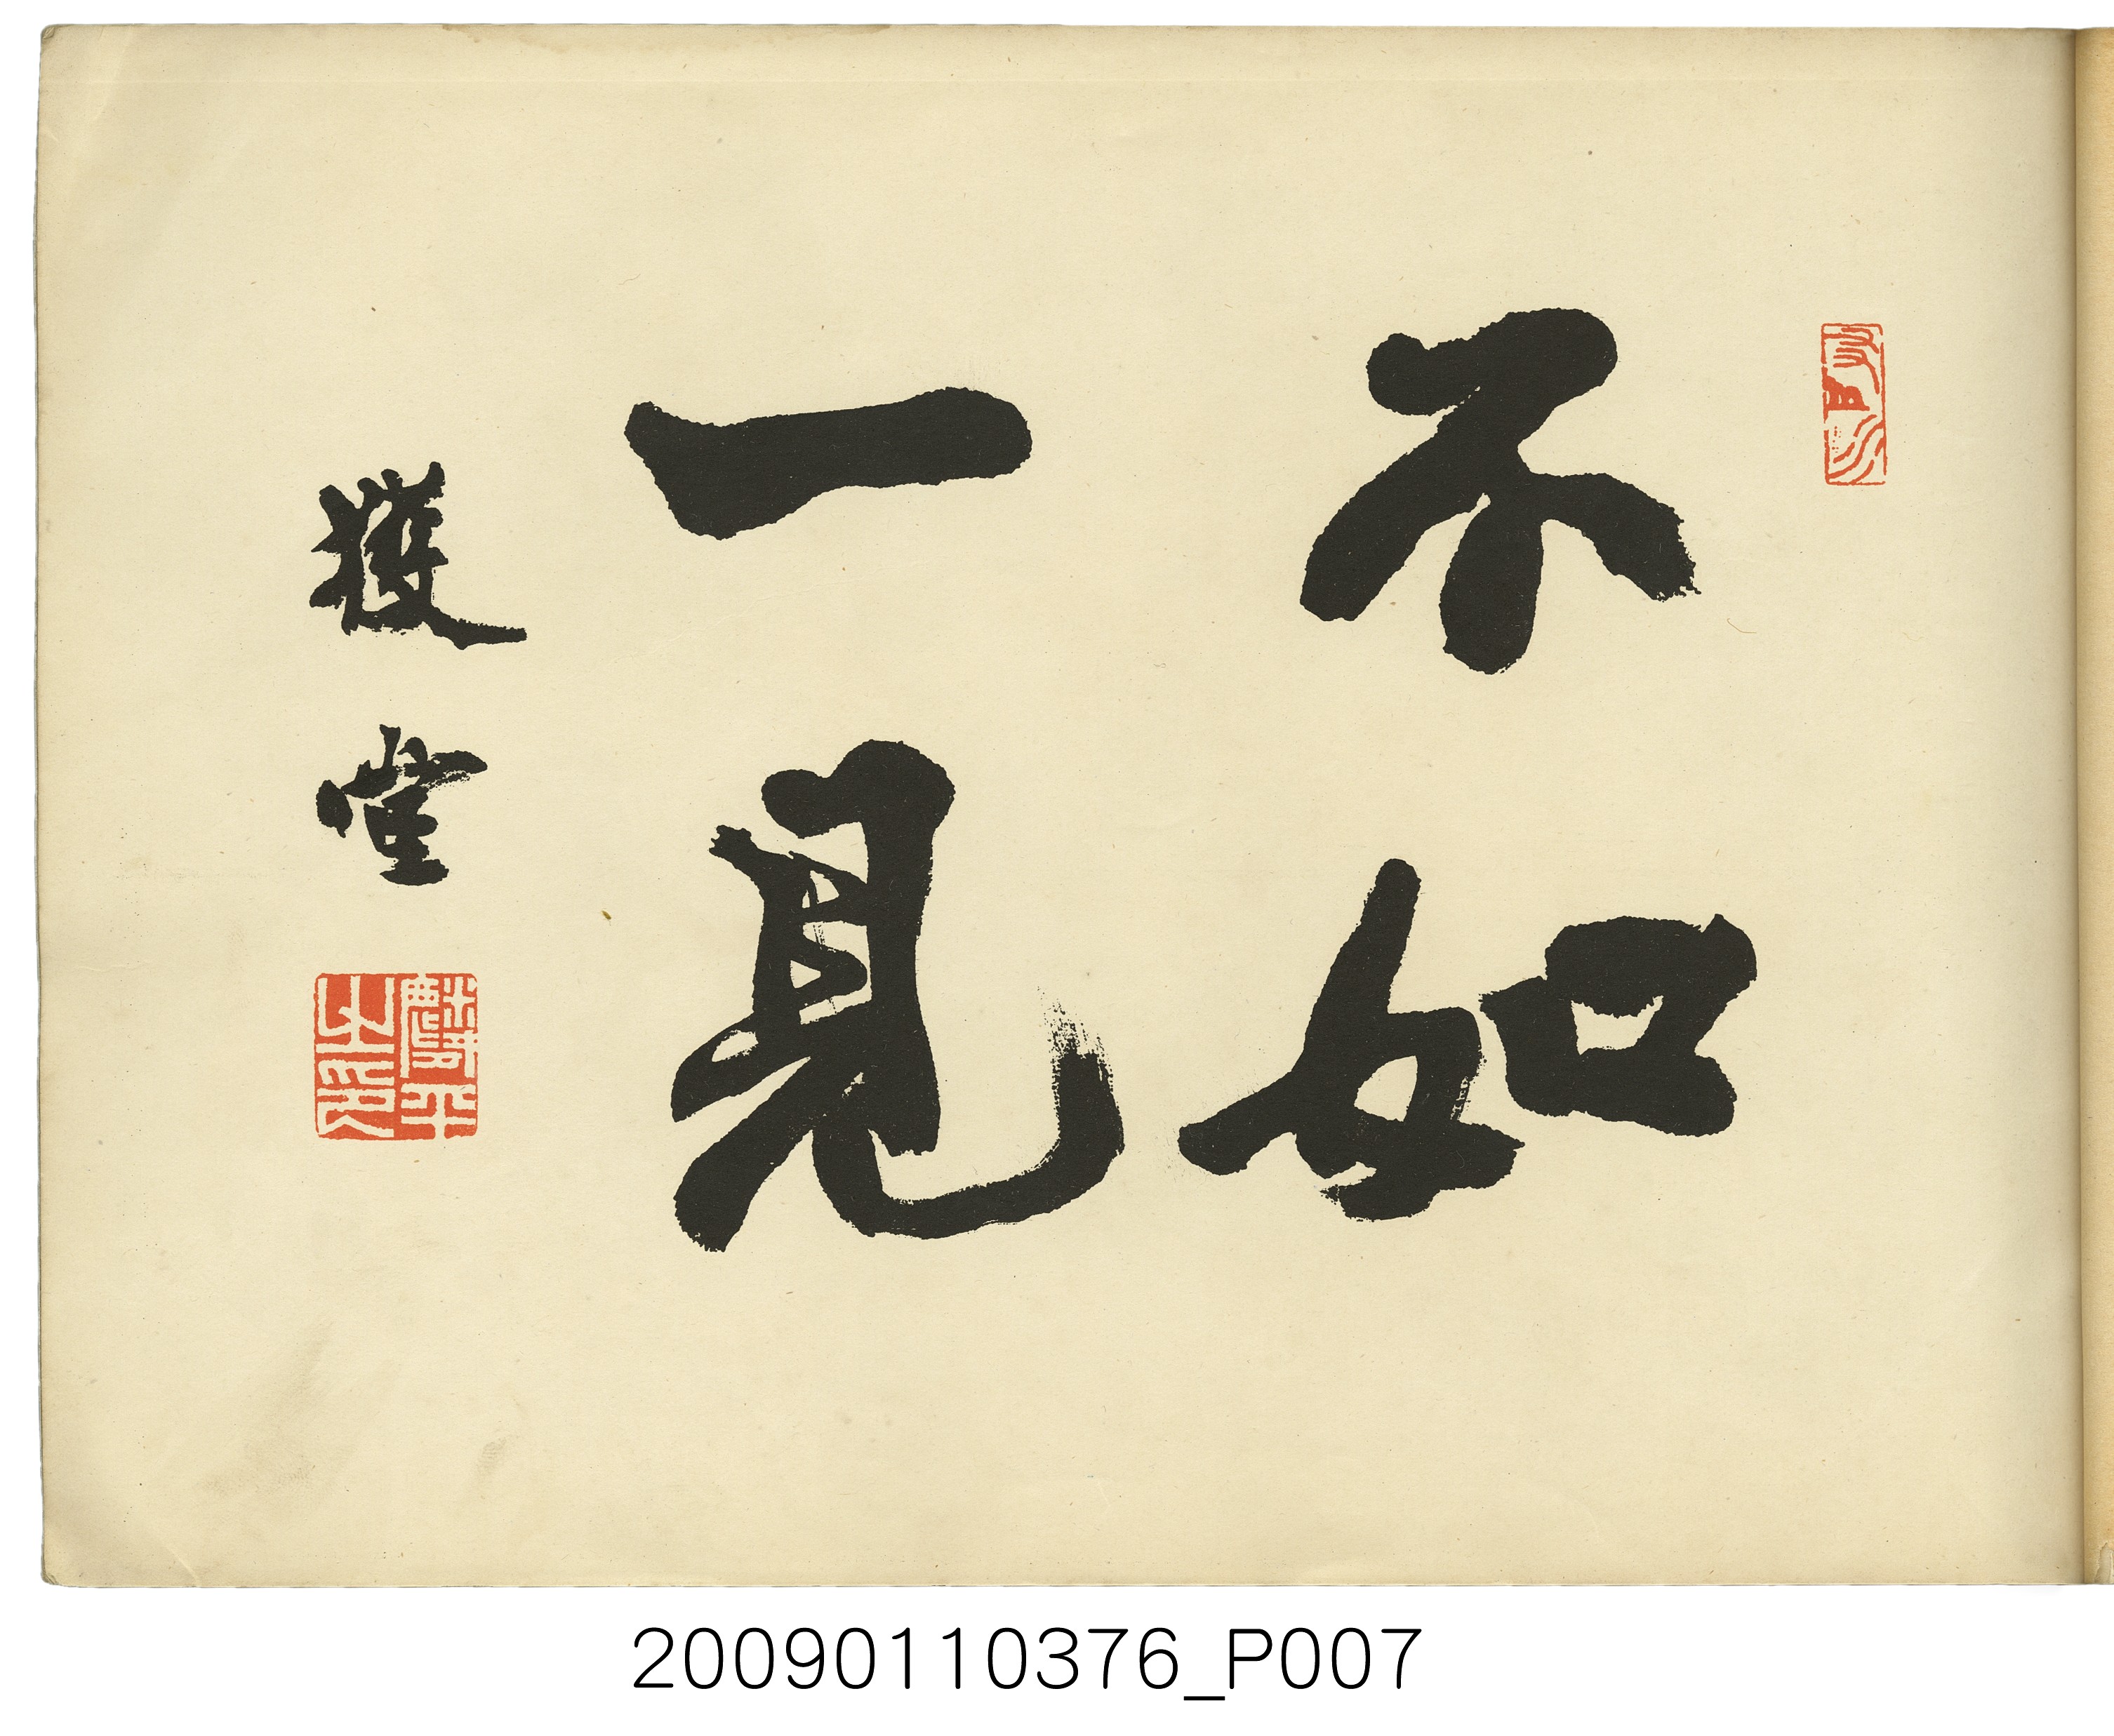 不如
一見
獲堂
20090110376_P007